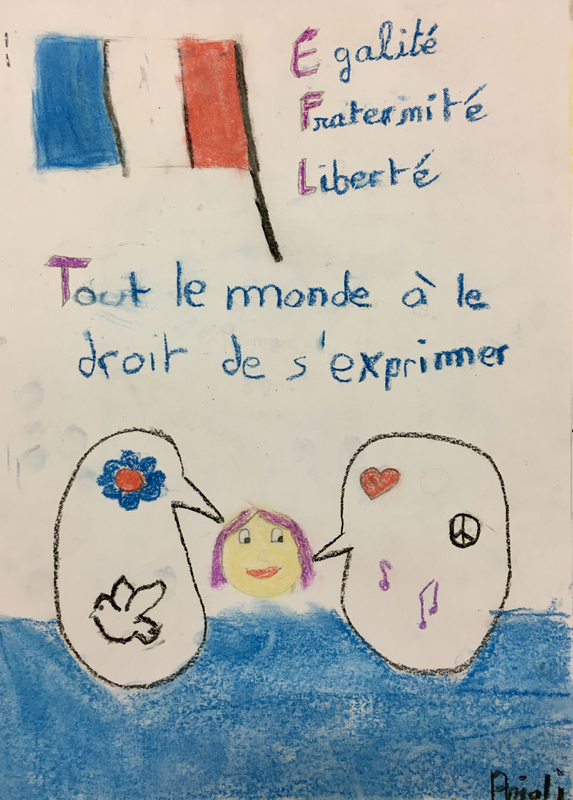 Égalité
Fraternité
Liberté
Tout le monde à le
droit de s'exprimer